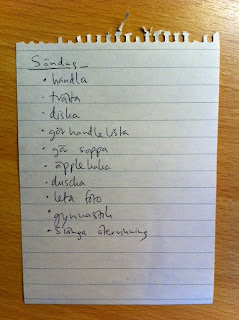 Söndag
• handla
• tvätta
• diska
• gör handlelista
• gör soppa
• äpplekaka
• duscha
• leta foto
• gymnastik
• slänga återvinning